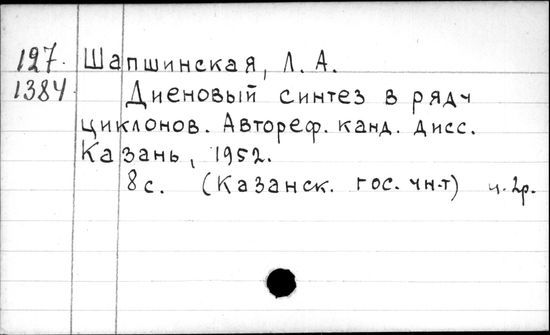 127. Шапшинская, Л. А.
1384. Диеновый синтез в ряду
циклонов. Автореф. канд. дисс.
Казань, 1952.
8 с. (Казанск. гос. ун-т) ц. 2р.